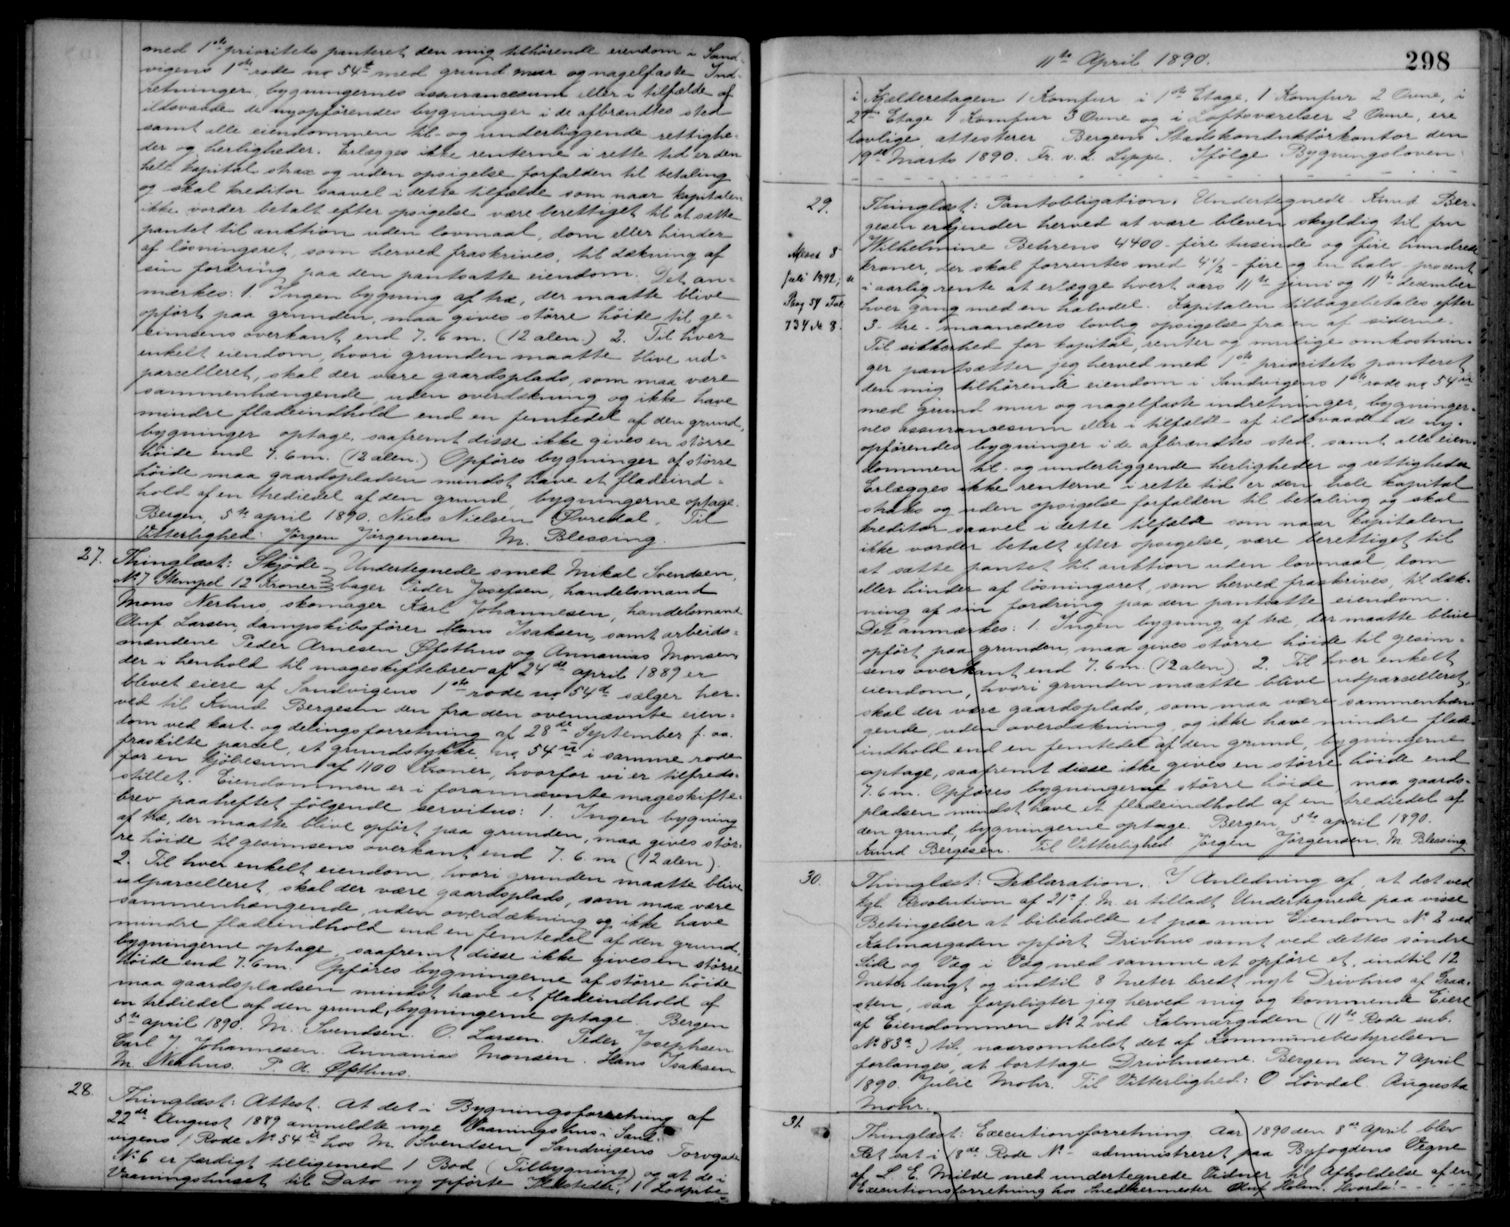 med 1ste prioritets panteret den mig tilhörende eiendom i Sand-
vigens 1ste rode no 54t med grund mur og nagelfaste Ind-
retninger, bygningernes assurancesum eller i tilfælde af
ildsvaade de nyopförendes bygninger i de afbrændtes sted
samt alle eiendommen til- og underliggende rettighe-
der og herligheder. Erlægges ikke renterne i rette tid er den
hele kapital strax og uden opsigelse forfalden til betaling
og skal kreditor saavel i dette tilfælde som naar kapitalen
ikke vorder betalt efter opsigelse være berettiget til at sætte
pantet til auktion uden lovmaal, dom eller hinder
af lösningsret, som herved fraskrives, til dækning af
sin fordring paa den pantsatte eiendom. Det an-
mærkes: 1. Ingen bygning af træ, der maatte blive
opfört paa grunden, maa gives större höide til ge-
simsens overkant end 7.6 m. (12 alen.) 2. Til hver
enkelt eiendom, hvori grunden maatte blive ud-
parcelleret, skal der være gaardsplads, som maa være
sammenhængende, uden overdækning og ikke have
mindre fladeindhold end en femtedel af den grund,
bygninger optage, saafremt disse ikke gives en större
höide end 7.6 m. (12 alen.) Opföres bygninger af större
höide maa gaardspladsen mindst have et fladeind-
hold af en trediedel af den grund bygningerne optage.
Bergen, 5te april 1890. Niels Nielsen Övredal. Til
Vitterlighed: Jörgen Jörgensen M. Blessing.
27. Thinglæst: Skjöde. Undertegnede smed Mikal Svendsen,
No 7 Stempel 12 Kroner bager Peder Josefsen, handelsmand
Mons Nerhus, skomager Karl Johannesen, handelsmand
Oluf Larsen, dampskibsförer Hans Isaksen, samt arbeids-
mændene Peder Arnesen Öfsthus og Annanias Monsen
der i henhold til mageskiftebrev af 24de april 1889 er
blevet eiere af Sandvigens 1ste rode no 54t sælger her-
ved til Knud Bergesen den fra den ovennævnte eien-
dom ved kart- og delingsforretning af 28de September f. aa.
fraskilte parcel, et grundstykke no 54 ü i samme rode
for en kjöbesum af 1100 Kroner, hvorfor vi er tilfreds-
stillet. Eiendommen er i forannævnte mageskifte-
brev paaheftet fölgende servitus: 1. Ingen bygning
af træ, der maatte blive opfört paa grunden, maa gives stör-
re höide til gesimsens overkant end 7.6 m (12 alen).
2. Til hver enkelt eiendom, hvori grunden maatte blive
udparcelleret, skal der være gaardsplads, som maa være
sammenhængende, uden overdækning og ikke have
mindre fladeindhold end en femtedel af den grund,
bygningerne optage, saafremt disse ikke gives en större
höide end 7.6 m. Opföres bygningerne af större höide
maa gaardspladsen mindst have et fladeindhold af
en trediedel af den grund, bygningerne optage. Bergen
5te april 1890. M. Svendsen. O. Larsen. Peder Josephsen
Carl J. Johannesen. Annanias Monsen. Hans Isaksen
M. Nerhus. P. A. Öfsthus.
28. Thinglæst: Attest. At det i Bygningsforretning af
22de August 1889 anmeldte nye Vaaningshus i Sand-
vigens 1 Rode No 54 hos M. Svendsen Sandvigens Torvgade
No 6 er færdigt tilligemed 1 Bod (Tilbygning) og at de i
Vaaningshuset til Dato ny opförte Ildsteder, 1
11te April 1890.
298
i Kjelderetagen 1 Komfur i 1ste Etage, 1 Komfur 2 Ovne, i
2den Etage 1 Komfur 3 Ovne og i Loftsværelser 2 Ovne, ere
lovlige attesterer Bergens Stadskonduktörkontor den
19de Marts 1890. Fr. v. d. Lippe. Ifölge Bygningsloven
29. Thinglæst: Pantobligation. Undertegnede Knud Ber-
gesen erkjender herved at være bleven skyldig til fru
Wilhelmine Behrens 4400- fire tusinde og fire hundrede
Aflæst 8
kroner, der skal forrentes med 4 1/2 - fire og en halv procent
Juli 1892,
i aarlig rente at erlægge hvert aars 11te juni og 11te december
Bog 54 Fol
hver gang med en halvdel. Kapitalen tilbagebetales efter
734 No 8.
3- tre- maaneders lovlig opsigelse fra en af siderne.
Til sikkerhed for kapital, renter og mulige omkostnin-
ger pantsætter jeg herved med 1ste prioritets panteret
den mig tilhörende eiendom i Sandvigens 1ste rode no 54 ü
med grund mur og nagelfaste indretninger, bygninger-
nes assurancesum eller i tilfælde af ildsvaade de ny-
opförendes bygninger i de afbrændtes sted, samt alle eien-
dommen til- og underliggende herligheder og rettigheder
Erlægges ikke renterne i rette tid er den hele kapital
straks og uden opsigelse forfalden til betaling og skal
kreditor saavel i dette tilfælde som naar kapitalen
ikke vorder betalt efter opsigelse, være berettiget til
at sætte pantet til auktion uden lovmaal, dom
eller hinder af lösningsret, som herved fraskrives, til dæk-
ning af sin fordring paa den pantsatte eiendom.
Det anmærkes: 1. Ingen bygning af træ, der maatte blive
opfört paa grunden, maa gives större höide til gesim-
sens overkant end 7.6 m (12 alen). 2. Til hver enkelt
eiendom, hvori grunden maatte blive udparcelleret,
skal der være gaardsplads, som maa være sammenhæn-
gende, uden overdækning og ikke have mindre flade-
indhold end en femtedel af den grund, bygningerne
optage, saafremt disse ikke gives en större höide end
7.6 m. Opföres bygningerne större höide maa gaards-
pladsen mindst have et fladeindhold af en trediedel af
den grund, bygningerne optage. Bergen, 5te april 1890.
Knud Bergesen. Til Vitterlighed Jörgen Jörgensen. M. Blessing
30. Thinglæst: Deklaration. I Anledning af, at det ved
kgl. Resolution af 21de f. M. er tilladt Undertegnede paa visse
Betingelser at bibeholde et paa min Eiendom No 2 ved
Kalmargaden opfört Drivhus samt ved dettes söndre
Side og Væg i Væg med samme at opföre et, indtil 12
Meter langt og indtil 8 Meter bredt nyt Drivhus af Graa-
sten, saa forpligter jeg herved mig og kommende Eiere
af Eiendommen No 2 ved Kalmargaden (11te Rode sub.
No 83a) til, naarsomhelst det af Kommunebestyrelsen
forlanges, at borttage Drivhusene. Bergen den 7 April
1890. Julie Mohr. Til Vitterlighed: O Lövdal Augusta
Mohr.
31. Thinglæst: Executionsforretning Aar 1890 den 8de April blev
Ret sat i 18de Rode No - administreret paa Byfogdens Vegne
af L. E. Milde med undertegnede Vidner til Afholdelse af en
Executionsforretning hos Snedkermester Oluf Holm. Hvorda! - - -